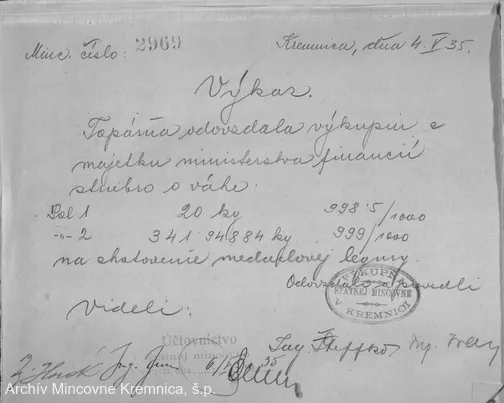 Minc. číslo: 2969 Kremnica, dňa 4. V 35.
Výkaz.
Topárňa odovzdala výkupni z
majetku ministerstva financií
striebro o váhe:
Pol 1 20 kg 998·5/1000
-„- 2 341·94884 kg 999/1000
na shotovenie medailovej legury.
Odovzdali a prevzali
Videli:
VÝKUPŇA
STÁTNEJ MINCOVNE
V KREMNICI
Účtovníctvo
štátnej mincovne
Ing.
Archív Mincovne Kremnica, š.p.